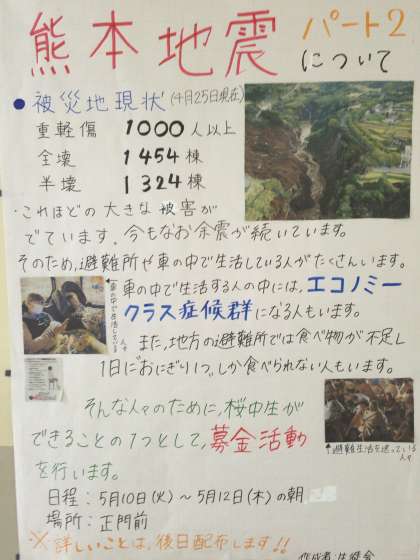 熊本地震 パート2
について
● 被災地現状 (4月25日現在)
重軽傷 1000人以上
全壊 1454棟
半壊 1324棟
・これほどの大きな被害が
でています。今もなお余震が続いています。
そのため,避難所や車の中で生活している人がたくさんいます。
車の中で生活する人の中には,エコノミー
クラス症候群になる人もいます。
←車の中で生活している人々
また,地方の避難所では食べ物が不足し
1日に"おにぎり1つ"しか食べられない人もいます。
↑避難生活を送っている
人々
そんな人々のために,桜中生が
できることの1つとして,募金活動
を行います。
日程:5月10日(火)〜5月12日(木)の朝
場所:正門前
※詳しいことは,後日配布します!!
作成者:生徒会